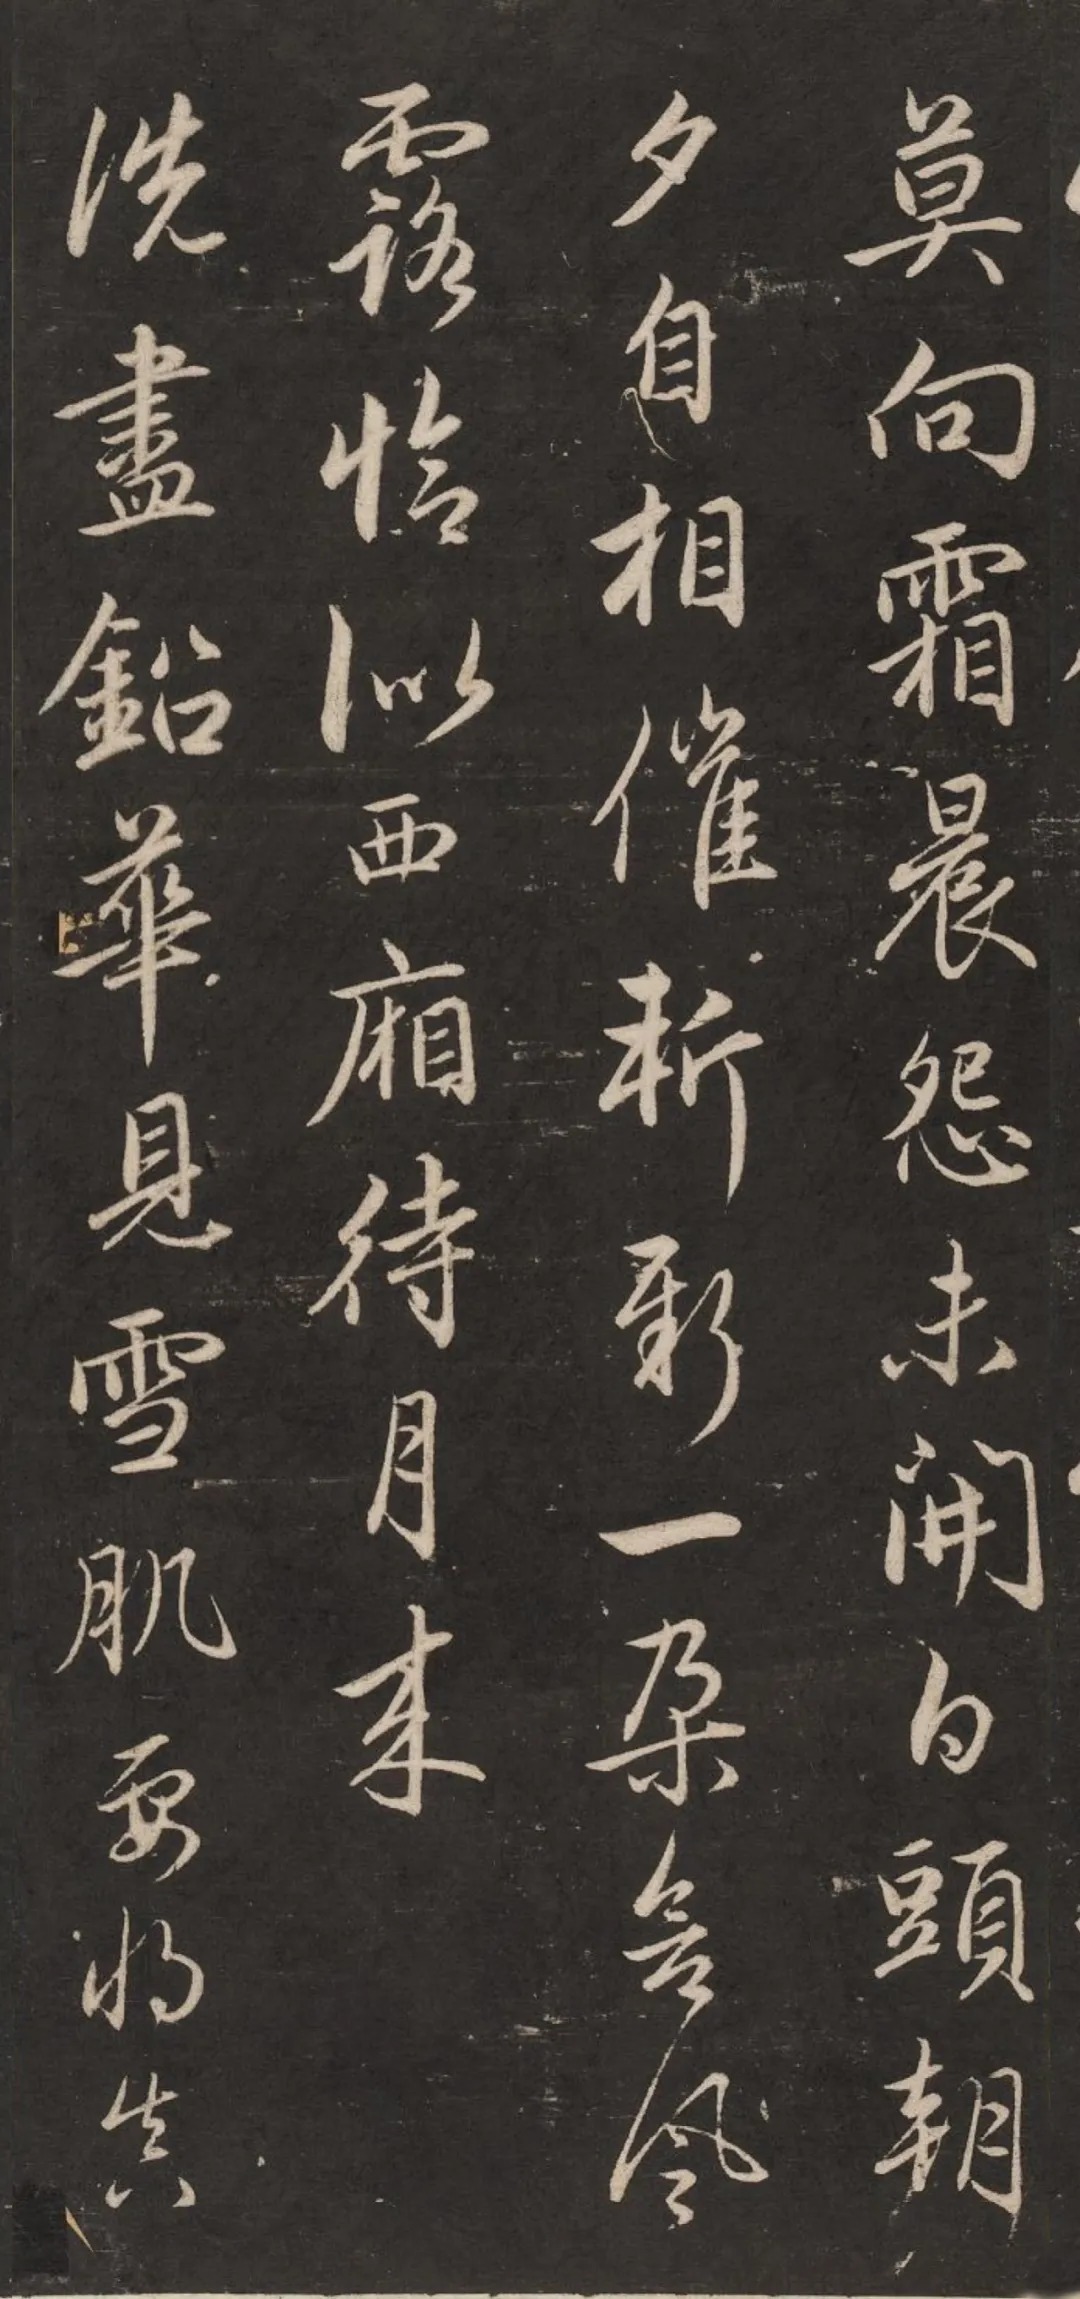 莫向霜晨怨未開白頭朝
夕自相催斬新一朵含風
露恰似西廂待月来
洗盡鉛華見雪肌要將真